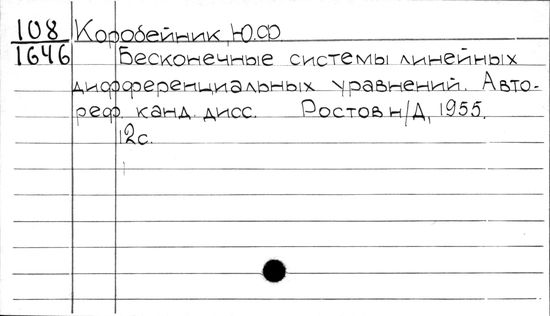 108 Коробейник, Ю.Ф
1646 Бесконечные системы линейных
дифференциальных уравнений. Авто-
реф. канд. дисс. Ростов н/Д, 1955.
12с.